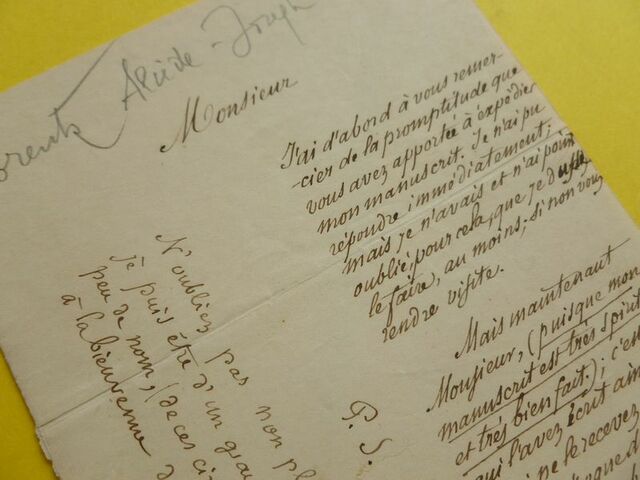 Alcide - Joseph
Monsieur
J'ai d'abord à vous remer-
-cier de la promptitude que
vous avez apportée à expédier
mon manuscrit. Je n'ai pu
répondre immédiatement;
mais je n'avais et n'ai point
oublié pour cela, que je dusse
le faire, au moins; si non vous
rendre visite.
Mais maintenant
Monsieur, (puisque mon
manuscrit est très spiri
et très bien fait.); c'es
qui l'avez écrit ain
ne le recevez
P. S.
N'oubliez pas non pl
Je puis être d'un gra
peu de nom, (de ces ci
à la bienvenue d